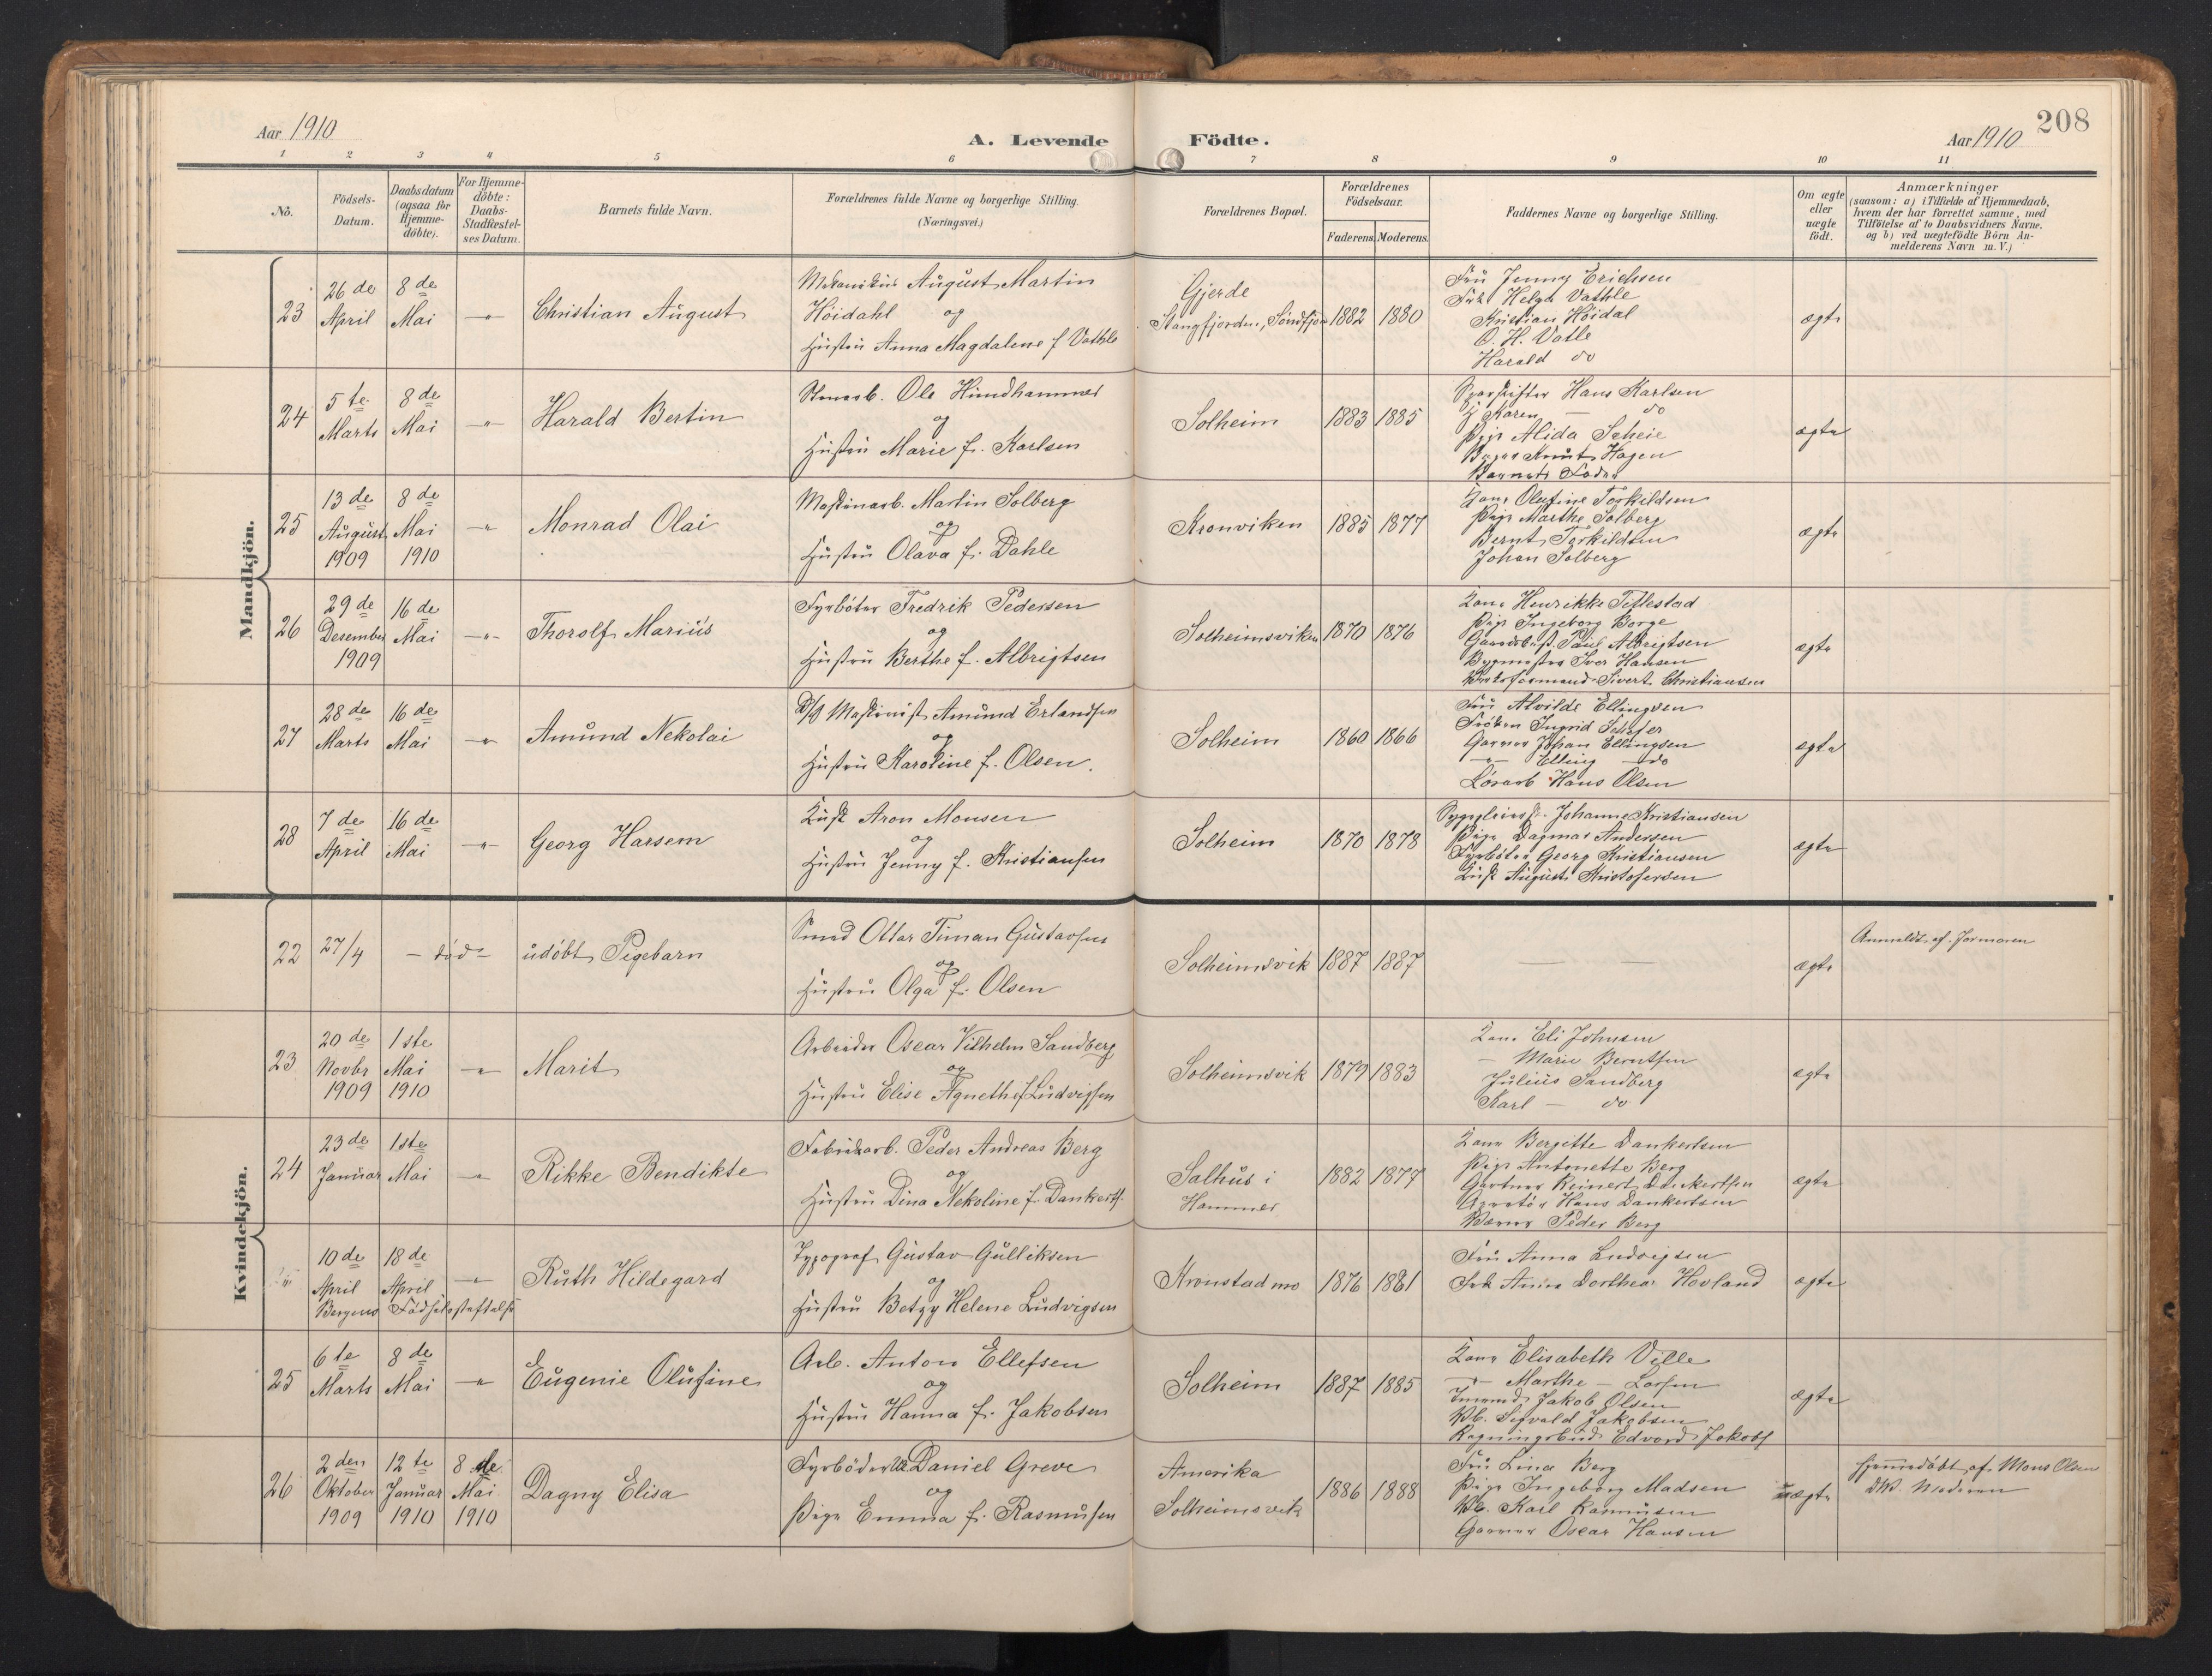 208
Aar 1910
A. Levende Födte.
Aar 1910
1 2 3 4 5 6 7 8 9 10 11
No.
Födsels-
Datum.
Daabsdatum
(ogsaa for
Hjemme-
döbte).
For Hjemme-
döbte:
Daabs-
Stadfæstel-
ses Datum.
Barnets fulde Navn.
Forældrenes fulde Navne og borgerlige Stilling.
(Næringsvei.)
Forældrenes Bopæl.
Forældrenes
Födselsaar.
Faderens. Moderens.
Faddernes Navne og borgerlige Stilling.
Om ægte
eller
uægte
födt.
Anmærkninger
(saasom: a) i Tilfælde af Hjemmedaab,
hvem der har forrettet samme, med
Tilföielse af to Daabsvidners Navne.
og b) ved uægtefödte Börn An-
melderens Navn m.V.)
Mandkjön.
23
26 de
April
8 de
Mai
-"-
Christian August
Mekanikus August Martin
Höidahl og
Hustru Anna Magdalene f Vathle
Gjerde
Stangfjorden, Söndfjor
1882 1880
Fru Jenny Erichsen
Frk Helga Vathle
Kristian Höidal
O. H. Vatle
Harald do
ægte
24
5 te
Marts
8 de
Mai
-"-
Harald Bertin
Stenarb. Ole Hundhammer
og
Hustru Marie f. Karlsen
Solheim
1883 1885
Sporskifter Hans Karlsen
Karen — do
Pige Alida Scheie
Knut Hagen
Barnets Fader
ægte
25
13 de
August
1909
8 de
Mai
1910
-"-
Monrad Olai
Maskinarb. Martin Solberg
og
Hustru Olava f. Dahle
Kronviken
1885 1877
Kone Olufine Torkildsen
Pige Marthe Solberg
Bernt Torkildsen
Johan Solberg
ægte
26
29 de
Desember
1909
16 de
Mai
-"-
Thorolf Marius
Fyrböter Fredrik Pedersen
og
Hustru Berthe f. Albrigtsen
Solheimsviken
1870 1876
Kone Henrikke Tillestad
Pige Ingeborg Borge
Paul Albrigtsen
Bygmester Iver Hansen
Sivert Christiansen
ægte
27
28 de
Marts
16 de
Mai
-"-
Amund Nekolai
D/S Maskinist Amund Erlandsen
og
Hustru Karoline f. Olsen.
Solheim
1860 1866
Fru Alvilde Ellingsen
Fröken Ingrid Schäfer
Garver Johan Ellingsen
-"- Elling do
Hans Olsen
ægte
28
7 de
April
16 de
Mai
-"-
Georg Harsem
Kusk Aron Monsen
og
Hustru Jenny f. Kristiansen
Solheim
1870 1878
Johanne Kristiansen
Pige Dagmar Andersen
Fyrböter Georg Kristiansen
Kusk August Kristofersen
ægte
Kvindekjön.
22
27/4
- död -
udöbt Pigebarn
Smed Ottar Timan Gustavsen
og
Hustru Olga f. Olsen
Solheimsvik
1887 1887
— —
ægte
Anmeldt af Jormoren
23
20 de
Novbr
1909
1 ste
Mai
1910
-"-
Marit
Arbeider Oscar Vilhelm Sandberg
og
Hustru Elise Agnethe f Ludvigsen
Solheimsvik
1879 1883
Kone Eli Johnsen
— Marie Berntsen
Julius Sandberg
Karl — do
ægte
24
23 de
Januar
1ste
Mai
-"-
Rikke Bendikte
Fabrikarb. Peder Andreas Berg
og
Hustru Dina Nekoline f. Dankerts.
Salhus i
Hammer
1882 1877
Kone Bergette Dankertsen
Pige Antonette Berg
Gartner Reinert Dankertsen
Hans Dankertsen
Peder Berg
ægte
10 de
April
18 de
April
Bergens Födselsstiftelse
-"-
Ruth Hildegard
Typograf Gustav Gulliksen
og
Hustru Betzy Helene Ludvigsen
Kronstad mo
1876 1881
Fru Anna Ludvigsen
Frk Anna Dorthea Hovland
ægte
25
6 te
Marts
8 de
Mai
-"-
Eugenie Olufine
Arb. Anton Ellefsen
og
Hustru Hanna f. Jakobsen
Solheim
1887 1885
Kone Elisabeth Ville
-"- Marthe — Larsen
Jakob Olsen
Sigvald Jakobsen
Edvard Jakobs
ægte
26
2 den
Oktober
1909
12 te
Januar
1910
8 de
Mai
1910
Dagny Elisa
Fyrböder Daniel Greve
og
Pige Emma f. Rasmussen
Amerika
Solheimsvik
1886 1888
Fru Lina Berg
Pige Ingeborg Madsen
Karl Rasmusen
Garver Oscar Hansen
uægte
Hjemmedöbt af Mons Olsen
Moderen